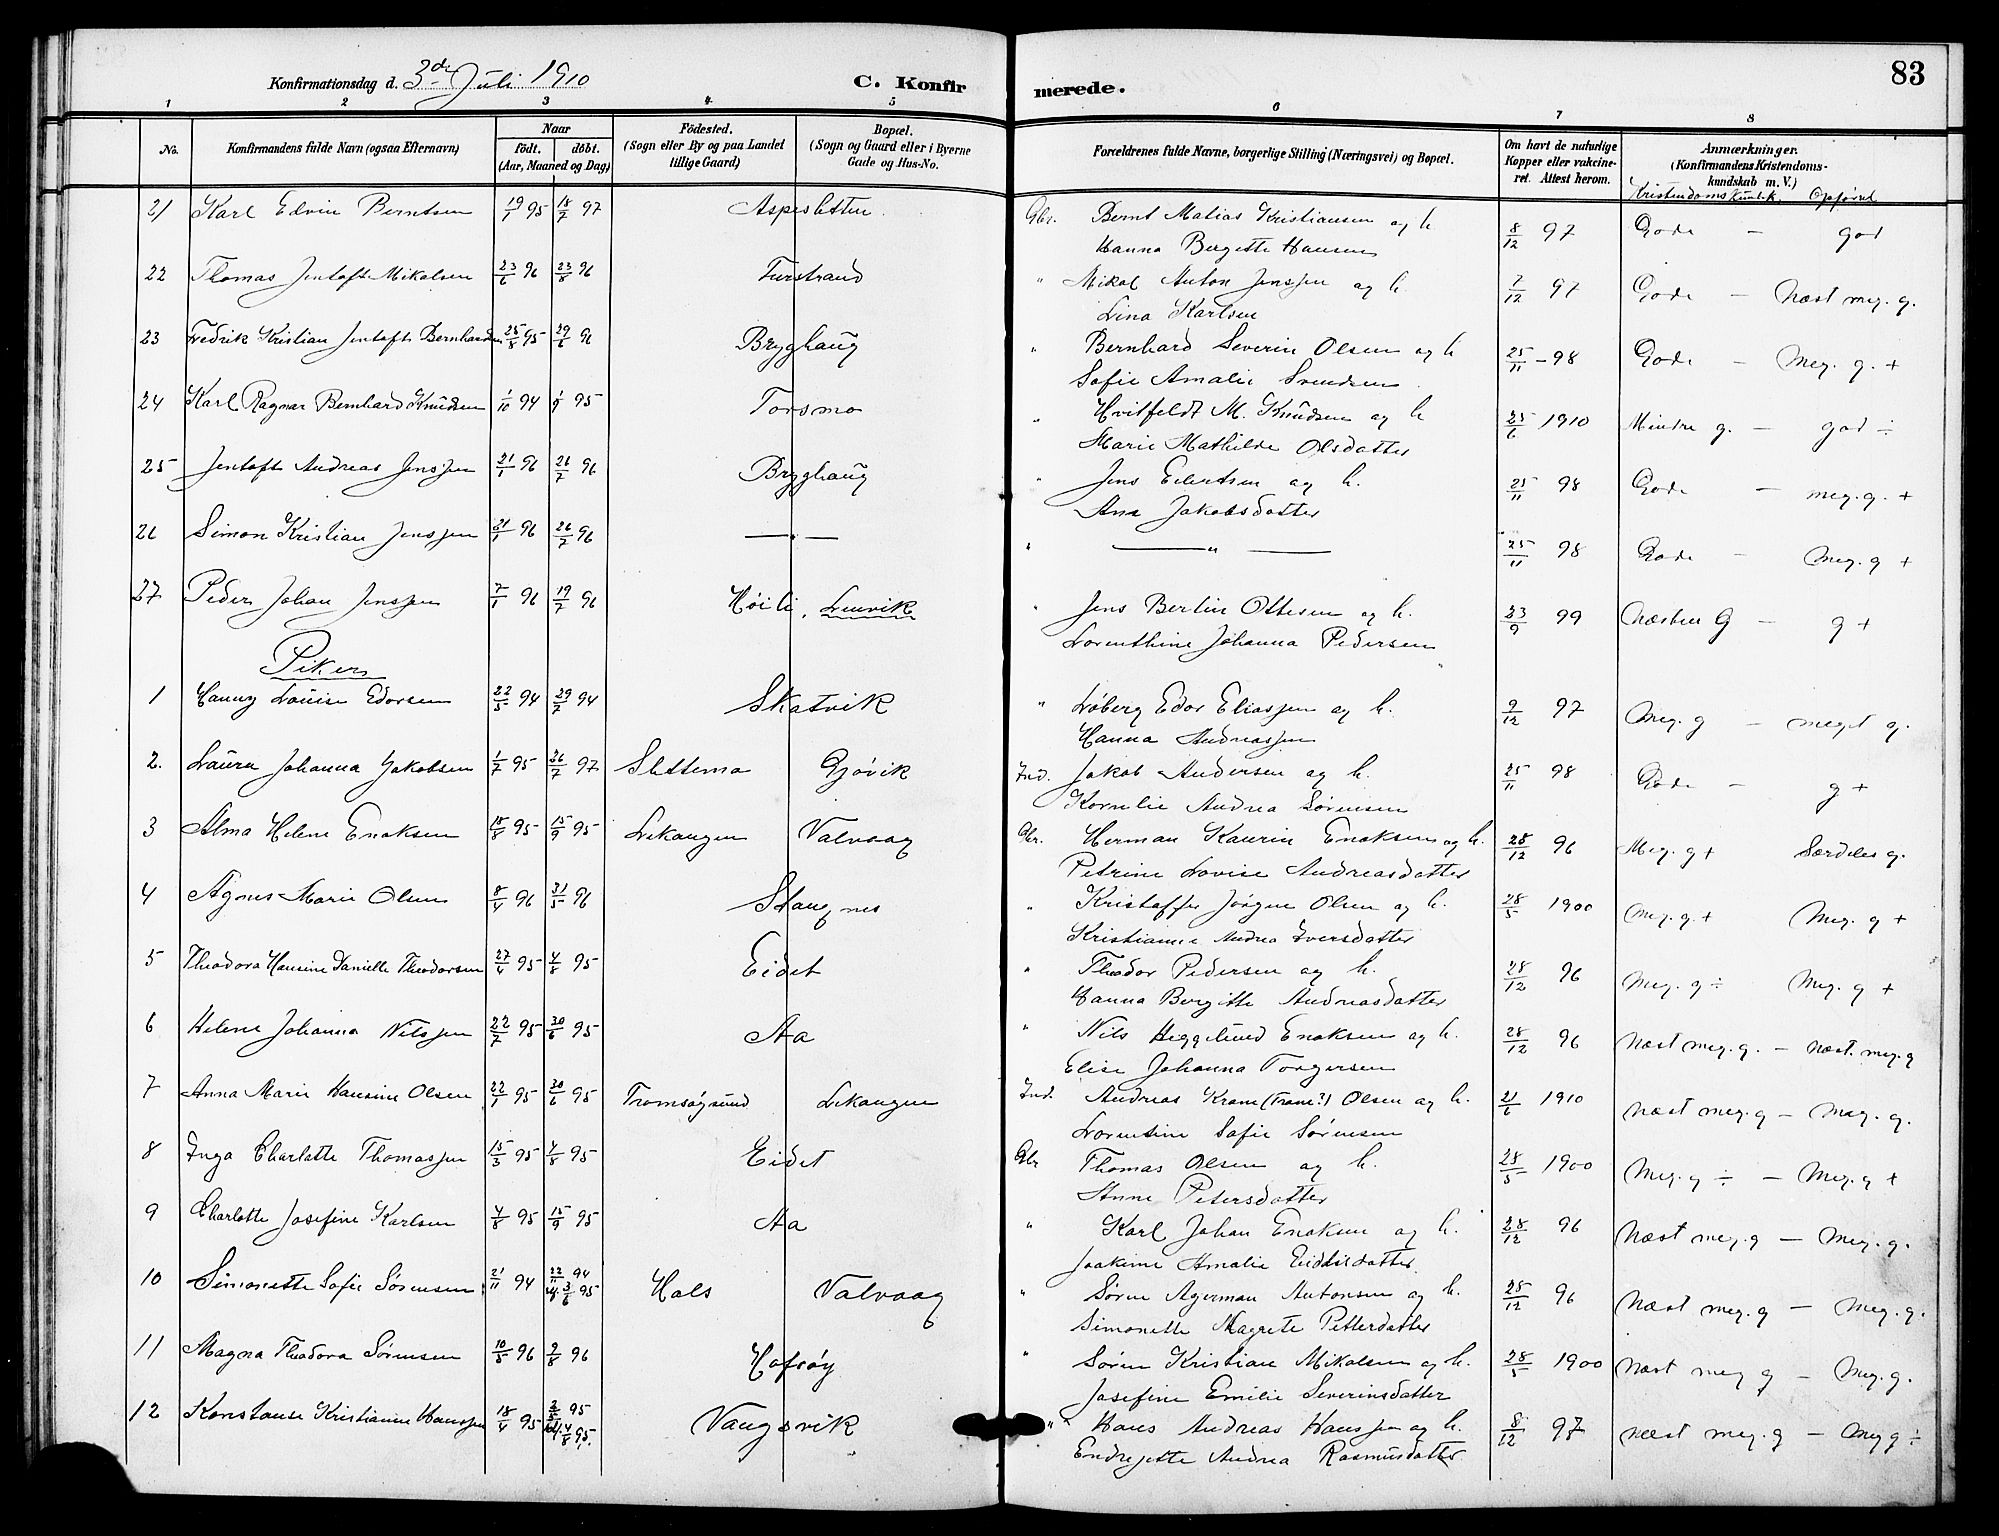 Konfirmationsdag d. 3de Juli 1910 C. Konfirmerede. 83
1 2 3 4 5 6 7 8
No. Konfirmandens fulde Navn (ogsaa Efternavn) Naar født. døbt. (Aar, Maaned og Dag) Fødested. (Sogn eller By og paa Landet tillige Gaard) Bopæl. (Sogn og Gaard eller i Byerne Gade og Hus-No. Forældrenes fulde Navne, borgerlige Stilling (Næringsvei) og Bopæl. Om havt de naturlige Kopper eller vakcineret. Attest herom. Anmærkninger. (Konfirmandens Kristendomskundskab m. V.)
Kristendomskundsk. Opførsel
21 Karl Edvin Berntsen 19/1 95 18/7 97 Aspesletten Gbr. Bernt Matias Kristiansen og h. 8/12 97 Gode — god
Hanna Bergitte Hansen
22 Thomas Jentoft Mikalsen 23/6 96 23/8 96 Furstrand " Mikal Anton Jenssen og h. 7/12 97 Gode — Næst meg. g.
Lina Karlsen
23 Fredrik Kristian Jentoft Bernhardsen 25/8 95 29/6 96 Bryghaug " Bernhard Severin Olsen og h 25/11 - 98 Gode — Meg. g. +
Sofie Amalie Svendsen
24 Karl Ragnar Bernhard Knudsen 1/10 94 1/9 95 Torsmo " Hvitfeldt M. Knudsen og h 25/6 1910 Mindre g. — god ÷
Marie Mathilde Olsdatter
25 Jentoft Andreas Jenssen 21/1 96 26/7 96 Bryghaug " Jens Edvardsen og h. 25/11 98 Gode — meg. g. +
Ana Jakobsdatter
26 Simon Kristian Jenssen 21/1 96 26/7 96 — " — " — " — 25/11 98 Gode — Meg. g +
27 Peder Johan Jenssen 7/1 96 19/7 96 Høili, Lenvik " Jens Bertin Ottesen og h. 23/9 99 Næsten G — g +
Lorenthine Johanna Pedersen
Piker
1 Hanny Louise Edorsen 22/5 94 29/7 94 Skatvik " Løberg Edor Eliassen og h. 9/12 97 Meg. g — meget g.
Hanna Andreassen
2. Laura Johanna Jakobsen 1/7 95 26/7 97 Slettemo Gjøvik Ind. Jakob Andersen og h. 25/11 98 Gode — g +
Kornelie Andrea Sørensen
3 Alma Helene Enoksen 18/8 95 15/9 95 Lekangen Valvaag Gbr. Herman Kaurin Enoksen og h. 28/12 96 Meg. g + Særdeles g.
Petrine Lovise Andreasdatter
4 Agnes Marie Olsen 8/4 96 31/5 96 Stangnes " Kristoffer Jørgen Olsen og h. 28/5 1900 Meg. g. + Meg. g +
Kristianna Andrea Iversdatter
5 Theodora Hansine Danielle Theodorsen 27/4 95 4/8 95 Eidet " Theodor Pedersen og h. 28/12 96 Meg. g ÷ Meg. g +
Hanna Bergitte Andreasdatter
6 Helene Johanna Nilssen 22/7 95 30/6 95 Aa " Nils Heggelund Enoksen og h. 28/12 96 Næst meg. g. — næst. meg. g
Elise Johanna Torgersen
7 Anna Marie Hansine Olsen 22/1 95 30/6 95 Tromsøysund Lekangen Ind. Andreas Krane (Frane?) Olsen og h. 21/6 1910 Næst meg. g — Meg. g.
Lorentine Sofie Sørensen
8 Inga Charlotte Thomassen 15/3 95 4/8 95 Eidet Gbr Thomas Olsen og h. 28/5 1900 Meg. g ÷ — Meg. g +
Anne Petersdatter
9 Charlotte Josefine Karlsen 4/8 95 15/9 95 Aa " Karl Johan Enoksen og h. 28/12 96 Næst meg. g — Meg. g.
Joakime Amalie
10 Simonette Sofie Sørensen 21/11 94 22/11 94 3/6 95 Hals Valvaag " Søren Agerman Antonsen og h. 25/12 96 Næst meg. g — Meg. g.
Simonette Magrete Petterdatter
11 Magna Theodora Sørensen 10/5 96 2/8 96 Hofsøy " Søren Kristian Mikalsen og h. 28/5 1900 Næst meg g — Meg. g.
Josefine Emilie Severinsdatter
12 Konstanse Kristianne Hanssen 18/4 95 2/5 95 4/8 95. Vangsvik " Hans Andreas Hanssen og h. 8/12 97 Næst meg. g — Meg g ÷
Endrejette Andrea Rasmusdatter